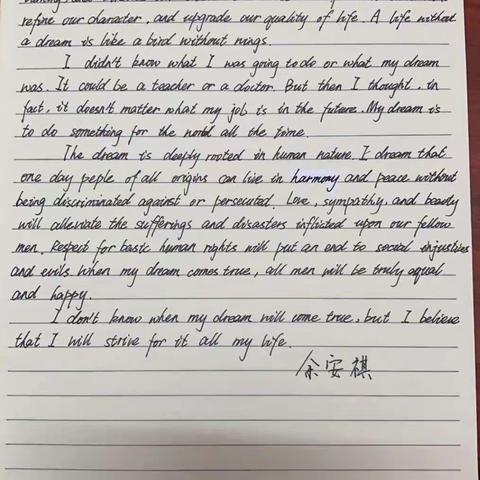 refine our character, and upgrade our quality of life. A life without
a dream is like a bird without wings.
I didn't know what I was going to do or what my dream
was. It could be a teacher or a doctor. But then I thought, in
fact, it doesn't matter what my job is in the future. My dream is
to do something for the world all the time.
The dream is deeply rooted in human nature. I dream that
one day peple of all origins can live in harmony and peace without
being discriminated against or persecuted. Love, sympathy, and beauty
will alleviate the sufferings and disasters inflicted upon our fellow
men. Respect for basic human rights will put an end to social injustices
and evils. When my dream comes true, all men will be truly equal
and happy.
I don't know when my dream will come true, but I believe
that I will strive for it all my life.
余安祺